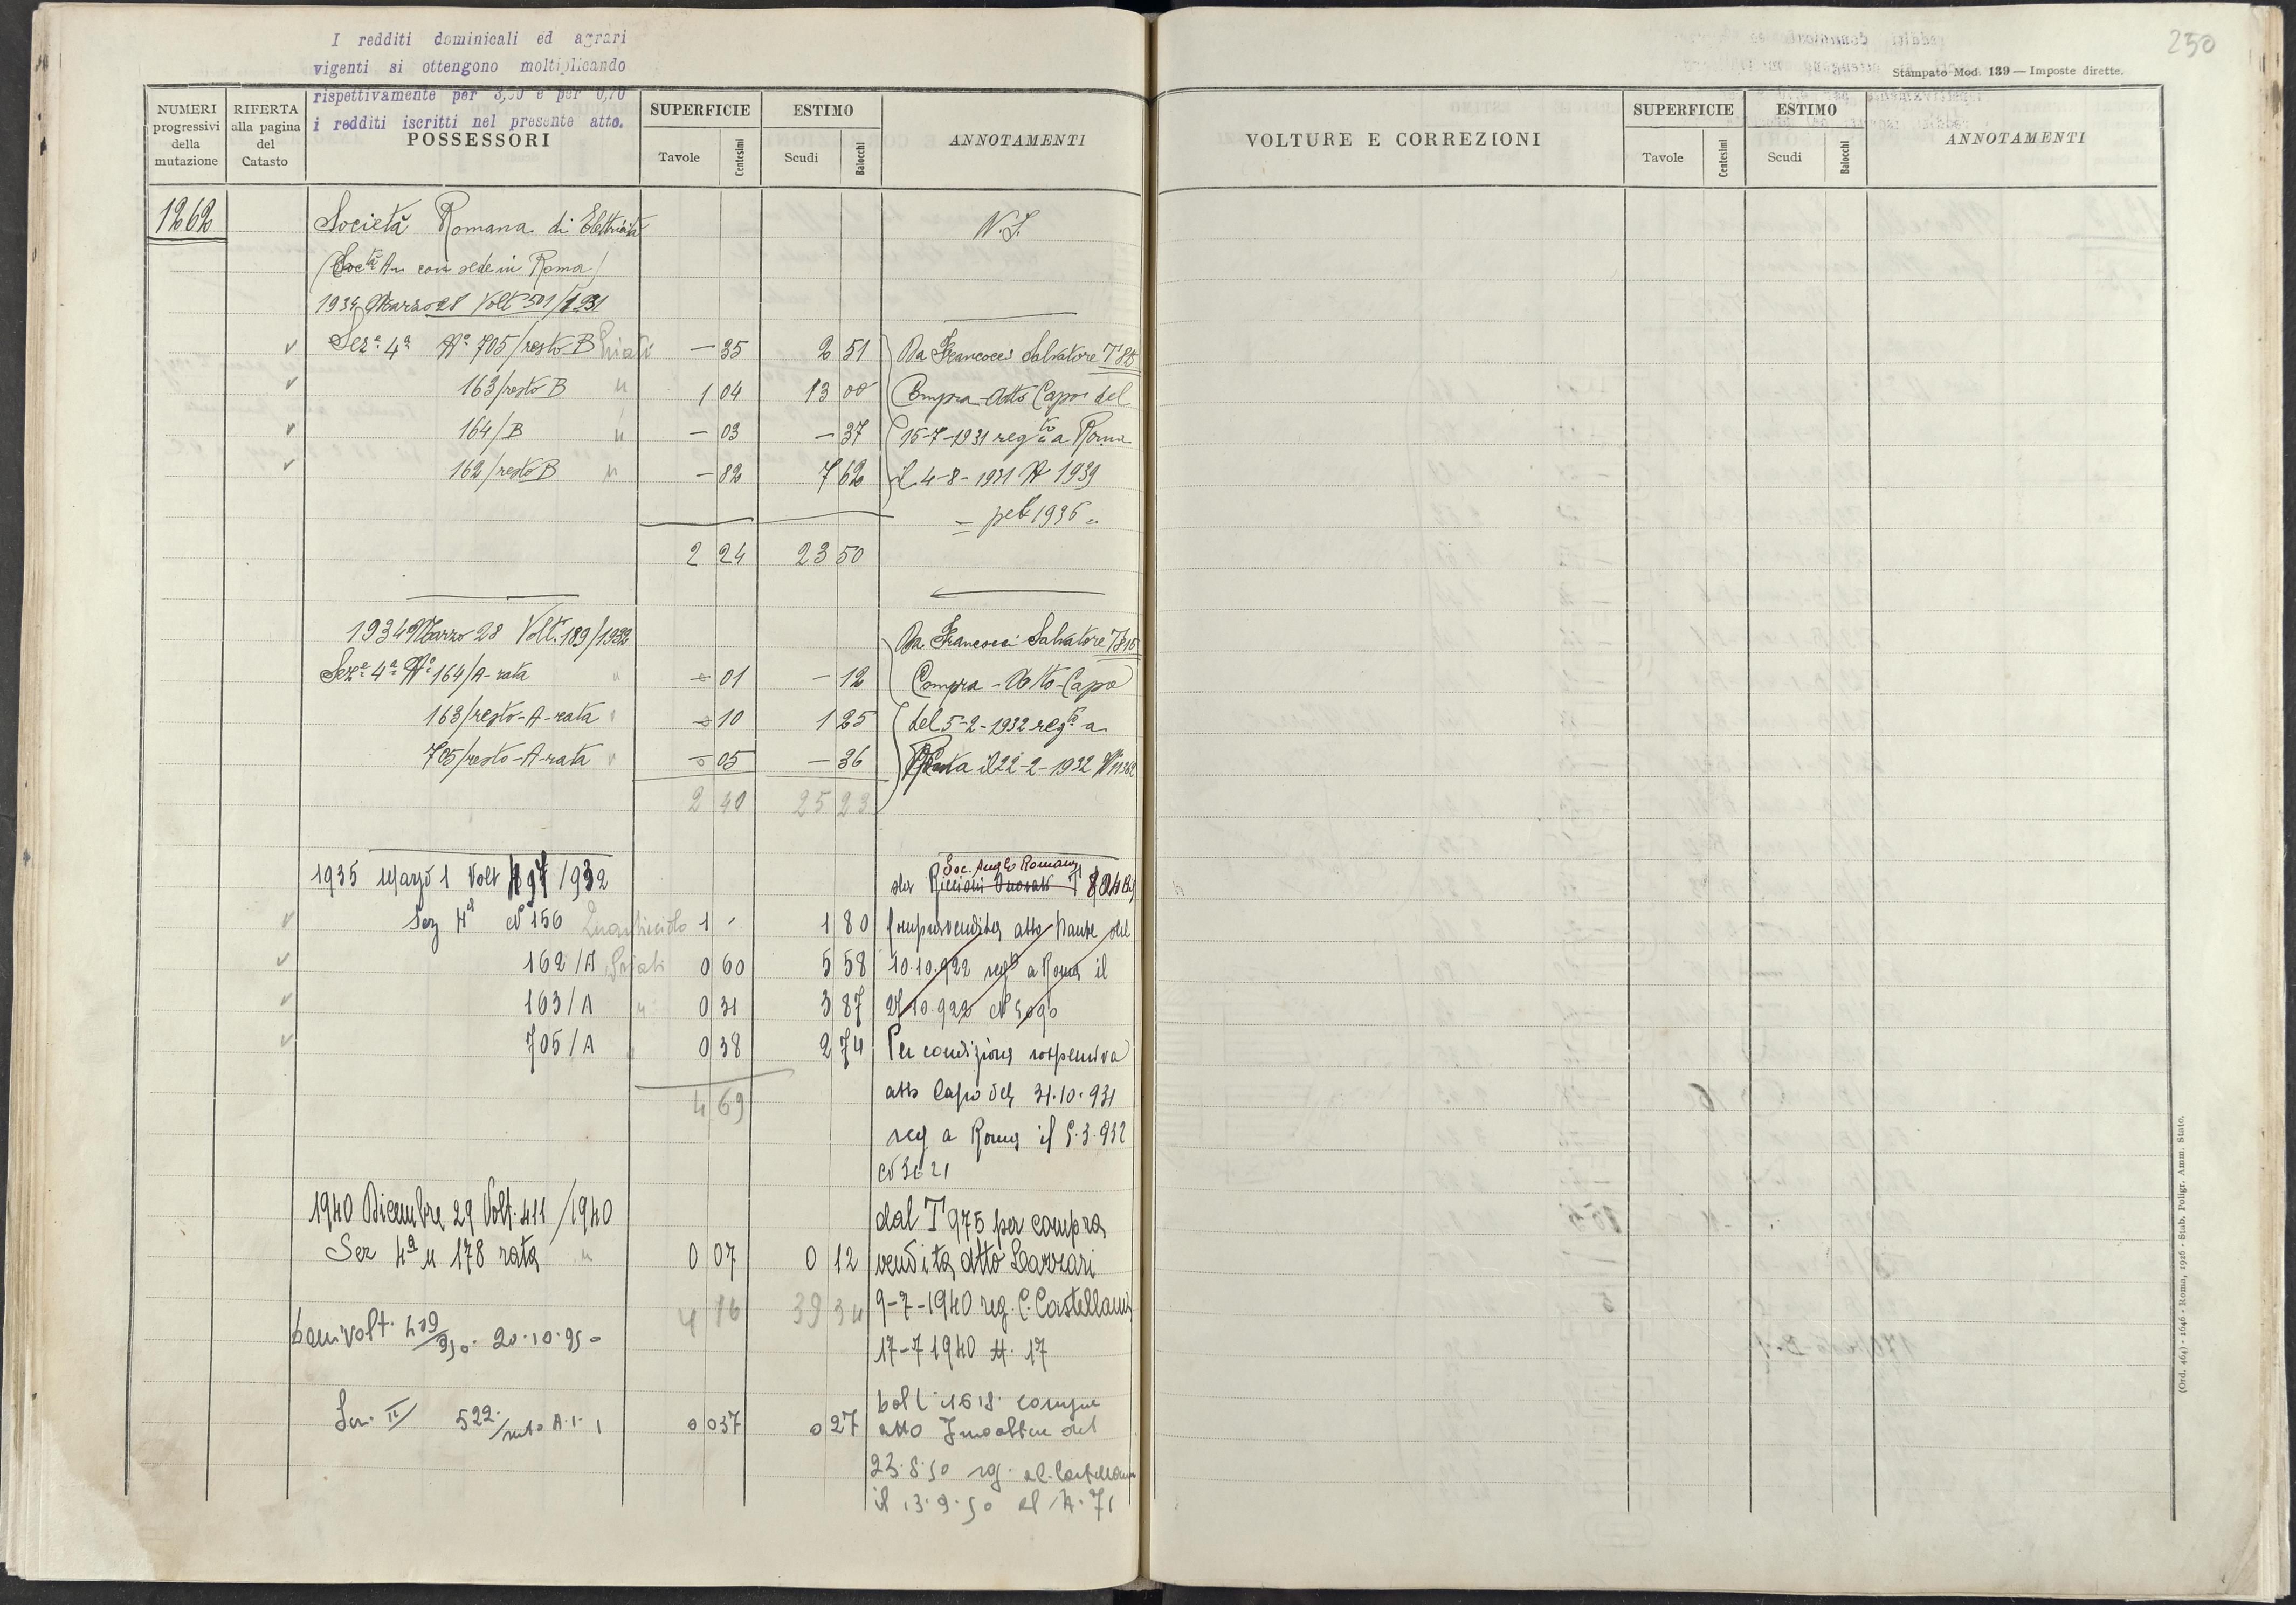 I redditi dominicali ed agrari
vigenti si ottengono moltiplicando
rispettivamente per 3,50 e per 0,70
i redditi iscritti nel presente atto.
230
Stampato Mod. 139 — Imposte dirette.
NUMERI progressivi della mutazione
RIFERTA alla pagina del Catasto
POSSESSORI
SUPERFICIE
Tavole Centesimi
ESTIMO
Scudi Baiocchi
ANNOTAMENTI
VOLTURE E CORREZIONI
SUPERFICIE
Tavole Centesimi
ESTIMO
Scudi Baiocchi
ANNOTAMENTI
1262 Società Romana di Elettricità
(Soctà An con sede in Roma)
1934 Marzo 28 Volt 501/1931
√ Seze 4a No 705/resto B — 35 2 51 Da Francocci Salvatore
√ 163/resto B " 1 04 13 00 Compra Atto Capo del
√ 164/B " — 03 — 37 15-7-1931 regto a Roma
√ 162/resto B " — 82 7 62 il 4-8-1931 No 1939
1936
2 24 23 50
1934 Marzo 28 Volt. 189/1932 Da Francocci Salvatore
Seze 4a No 164/A-rata 01 — 12 Compra - Atto-Capo
163/resto-A-rata 10 1 25 del 5-2-1932 regto a
705/resto-A-rata 05 — 36 il 22-2-1932
2 40 25 23
Soc. Anglo Romana
1935 Marzo 1 Volt 497/932
√ Sez 4a N 156 Quarticciolo 1 - 1 80 Compravendita atto del
√ 162/A 0 60 5 58 10.10.922 rego a Roma il
√ 163/A " 0 31 3 87 10.922 N
√ 705/A " 0 38 2 74 Per condizione sospensiva
4 69 atto Capo del 31.10.931
reg a Roma il 5.3.932
1940 Dicembre 29 Volt. 411/1940 dal T 975 per compra
Sez 4a n 178 rata " 0 07 0 12 vendita atto Lazzari
4 76 39 34 9-7-1940 reg. C. Castellana
17-7 1940 N. 17
20.10.950
Sez. II 522/resto A.1.1 0 037 0 27 atto del
23.8.50
il 13.9.50 al N. 71
(Ord. 464) - 1646 - Roma, 1926 - Stab. Poligr. Amm. Stato.